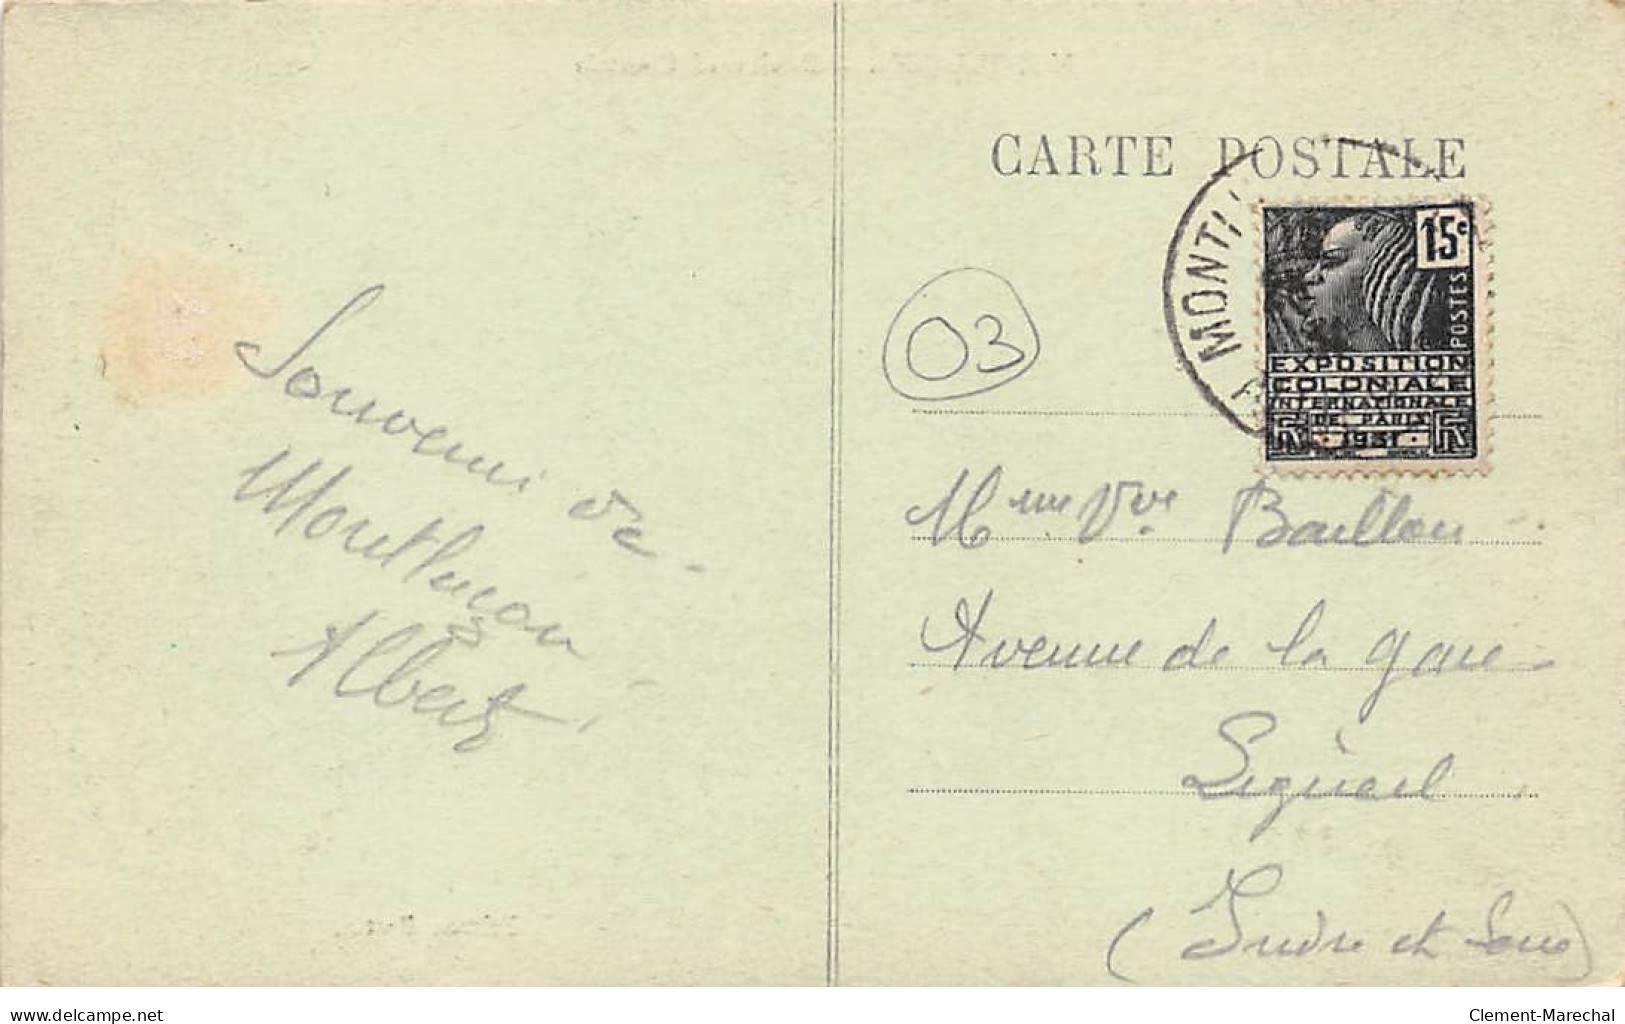 CARTE POSTALE
MONTL
15c
POSTES
EXPOSITION
COLONIALE
INTERNATIONALE
DE PARIS
1931
RF
03
Souvenir de
Montluçon
Albert
Mme Vve Baillou
Avenue de la gare
Ligueil
(Indre et Loire)
www.delcampe.net
Clement-Marechal